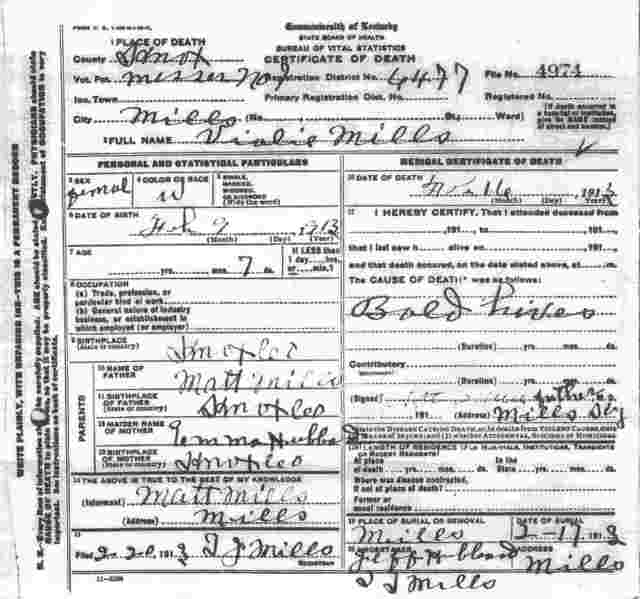 Commonwealth of Kentucky
STATE BOARD OF HEALTH
BUREAU OF VITAL STATISTICS
CERTIFICATE OF DEATH
1 PLACE OF DEATH
County Knox
Vot. Pct. Messer No 1 Registration District No. 6477 File No. 4974
Inc. Town Primary Registration Dist. No. Registered No.
City Mills (No. St.; Ward)
(If death occurred in a hospital or institution, give its NAME instead of street and number.)
2 FULL NAME Vialie Mills
PERSONAL AND STATISTICAL PARTICULARS
3 SEX Femal
4 COLOR OR RACE W
5 SINGLE, MARRIED, WIDOWED, OR DIVORCED (Write the word)
6 DATE OF BIRTH Feb 9 1913
(Month) (Day) (Year)
7 AGE yrs. mos. 7 ds.
If LESS than 1 day....hrs. or....min.?
8 OCCUPATION
(a) Trade, profession, or particular kind of work
(b) General nature of industry business, or establishment in which employed (or employer)
9 BIRTHPLACE (State or country) Knox Co
PARENTS
10 NAME OF FATHER Matt Mills
11 BIRTHPLACE OF FATHER (State or country) Knox Co
12 MAIDEN NAME OF MOTHER Emma Hubbard
13 BIRTHPLACE OF MOTHER (State or country) Knox Co
14 THE ABOVE IS TRUE TO THE BEST OF MY KNOWLEDGE
(Informant) Matt Mills
(Address) Mills
15
Filed 2-20 1913 T J Mills
REGISTRAR
MEDICAL CERTIFICATE OF DEATH
16 DATE OF DEATH 1913
(Month) (Day) (Year)
17 I HEREBY CERTIFY, That I attended deceased from
191 to 191
that I last saw h alive on 191
and that death occurred, on the date stated above, at m.
The CAUSE OF DEATH* was as follows:
Bold hives
(Duration) yrs. mos. ds.
Contributory
(Duration) yrs. mos. ds.
(Signed) father
191 (Address) Mills Ky
18 LENGTH OF RESIDENCE (For Hospitals, Institutions, Transients or Recent Residents)
At place of death yrs. mos. ds. In the State yrs. mos. ds.
Where was disease contracted, if not at place of death?
Former or usual residence
19 PLACE OF BURIAL OR REMOVAL Mills
DATE OF BURIAL 2-17 1913
20 UNDERTAKER Jeff Hubbard
ADDRESS Mills
T J Mills
WRITE PLAINLY, WITH UNFADING INK—THIS IS A PERMANENT RECORD